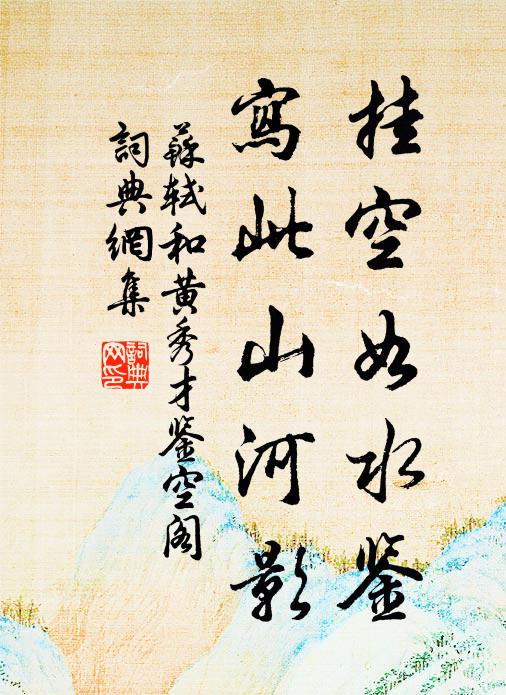 挂空如水鉴
寫此山河影
蘇軾和黄秀才鉴空阁
詞典網集
詞典
网印